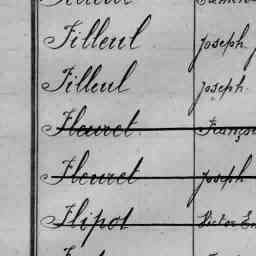 Filleul Joseph
Filleul Joseph
Fleuret
Fleuret Joseph
Flipot Victor